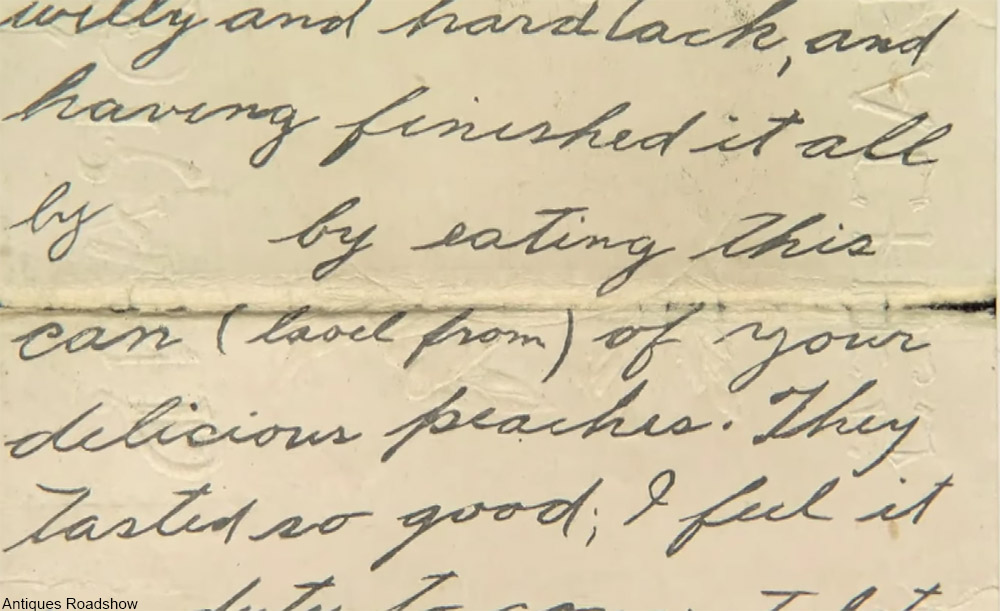 willy and hardtack, and
having finished it all
by by eating this
can (lavel from) of your
delicious peaches. They
Tasted so good; I feel it
duty to
Antiques Roadshow